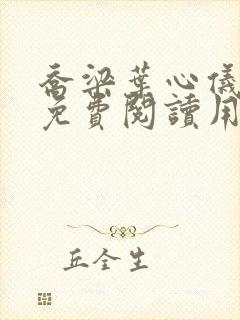 喬梁葉心儀
免費閱讀用
丘全生